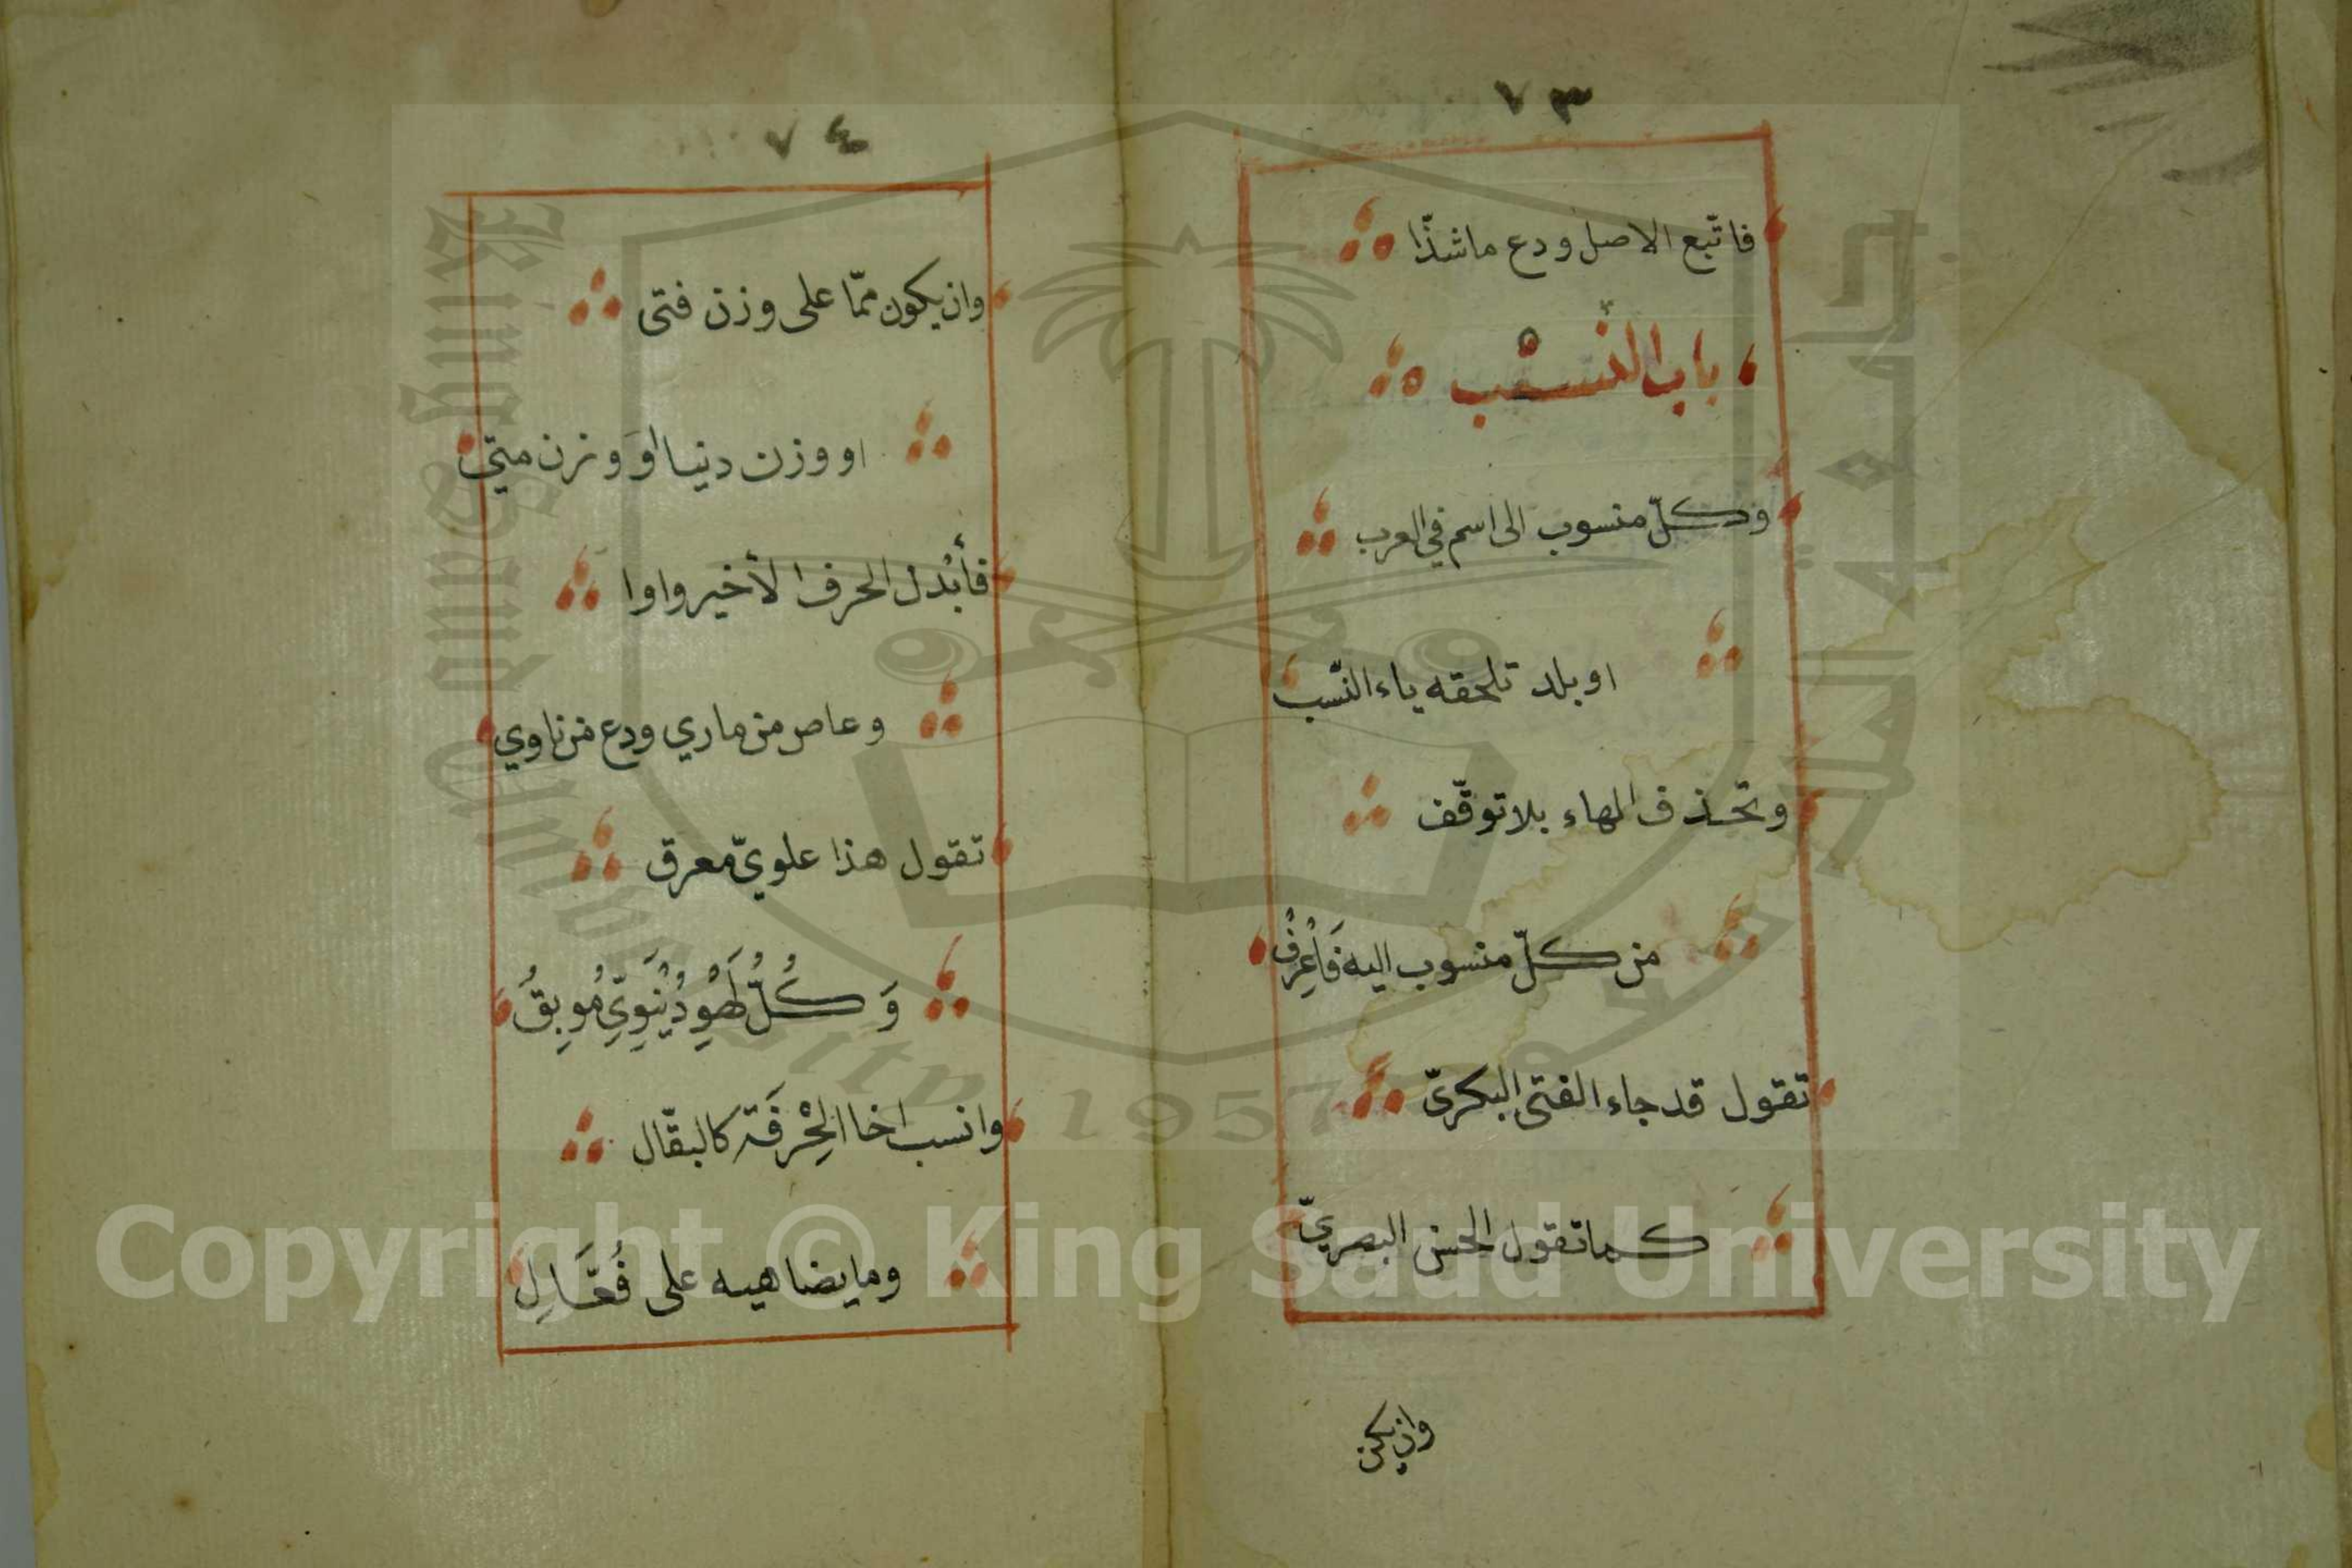 ٧٣
فاتّبع الاصل ودع ماشذّا
باب النسْب
وكلّ منسوب الى اسم في العرب
او بلد تلحقه ياء النّسب
وتحذف الهاء بلا توقّف
من كلّ منسوب اليه فَاعْرِفُ
تقول قد جاء الفتى البكريّ
كما تقول الحسن البصريّ
وان يكن
٧٤
وان يكون ممّا على وزن فتى
او وزن دنيا اوَ وزن متى
فأَبْدل الحرف الأخير واوا
وعاص من ماري ودع من ناوي
تقول هذا علويّ معرق
وَكُلُّ لَهْوٍ دُنْيَوِيٍّ مُوبِقُ
وانسب اخا الحِْرفَة كالبقّال
وما يضاهيه على فُعَّالِ
Copyright © King Saud University
King Saud University
1957